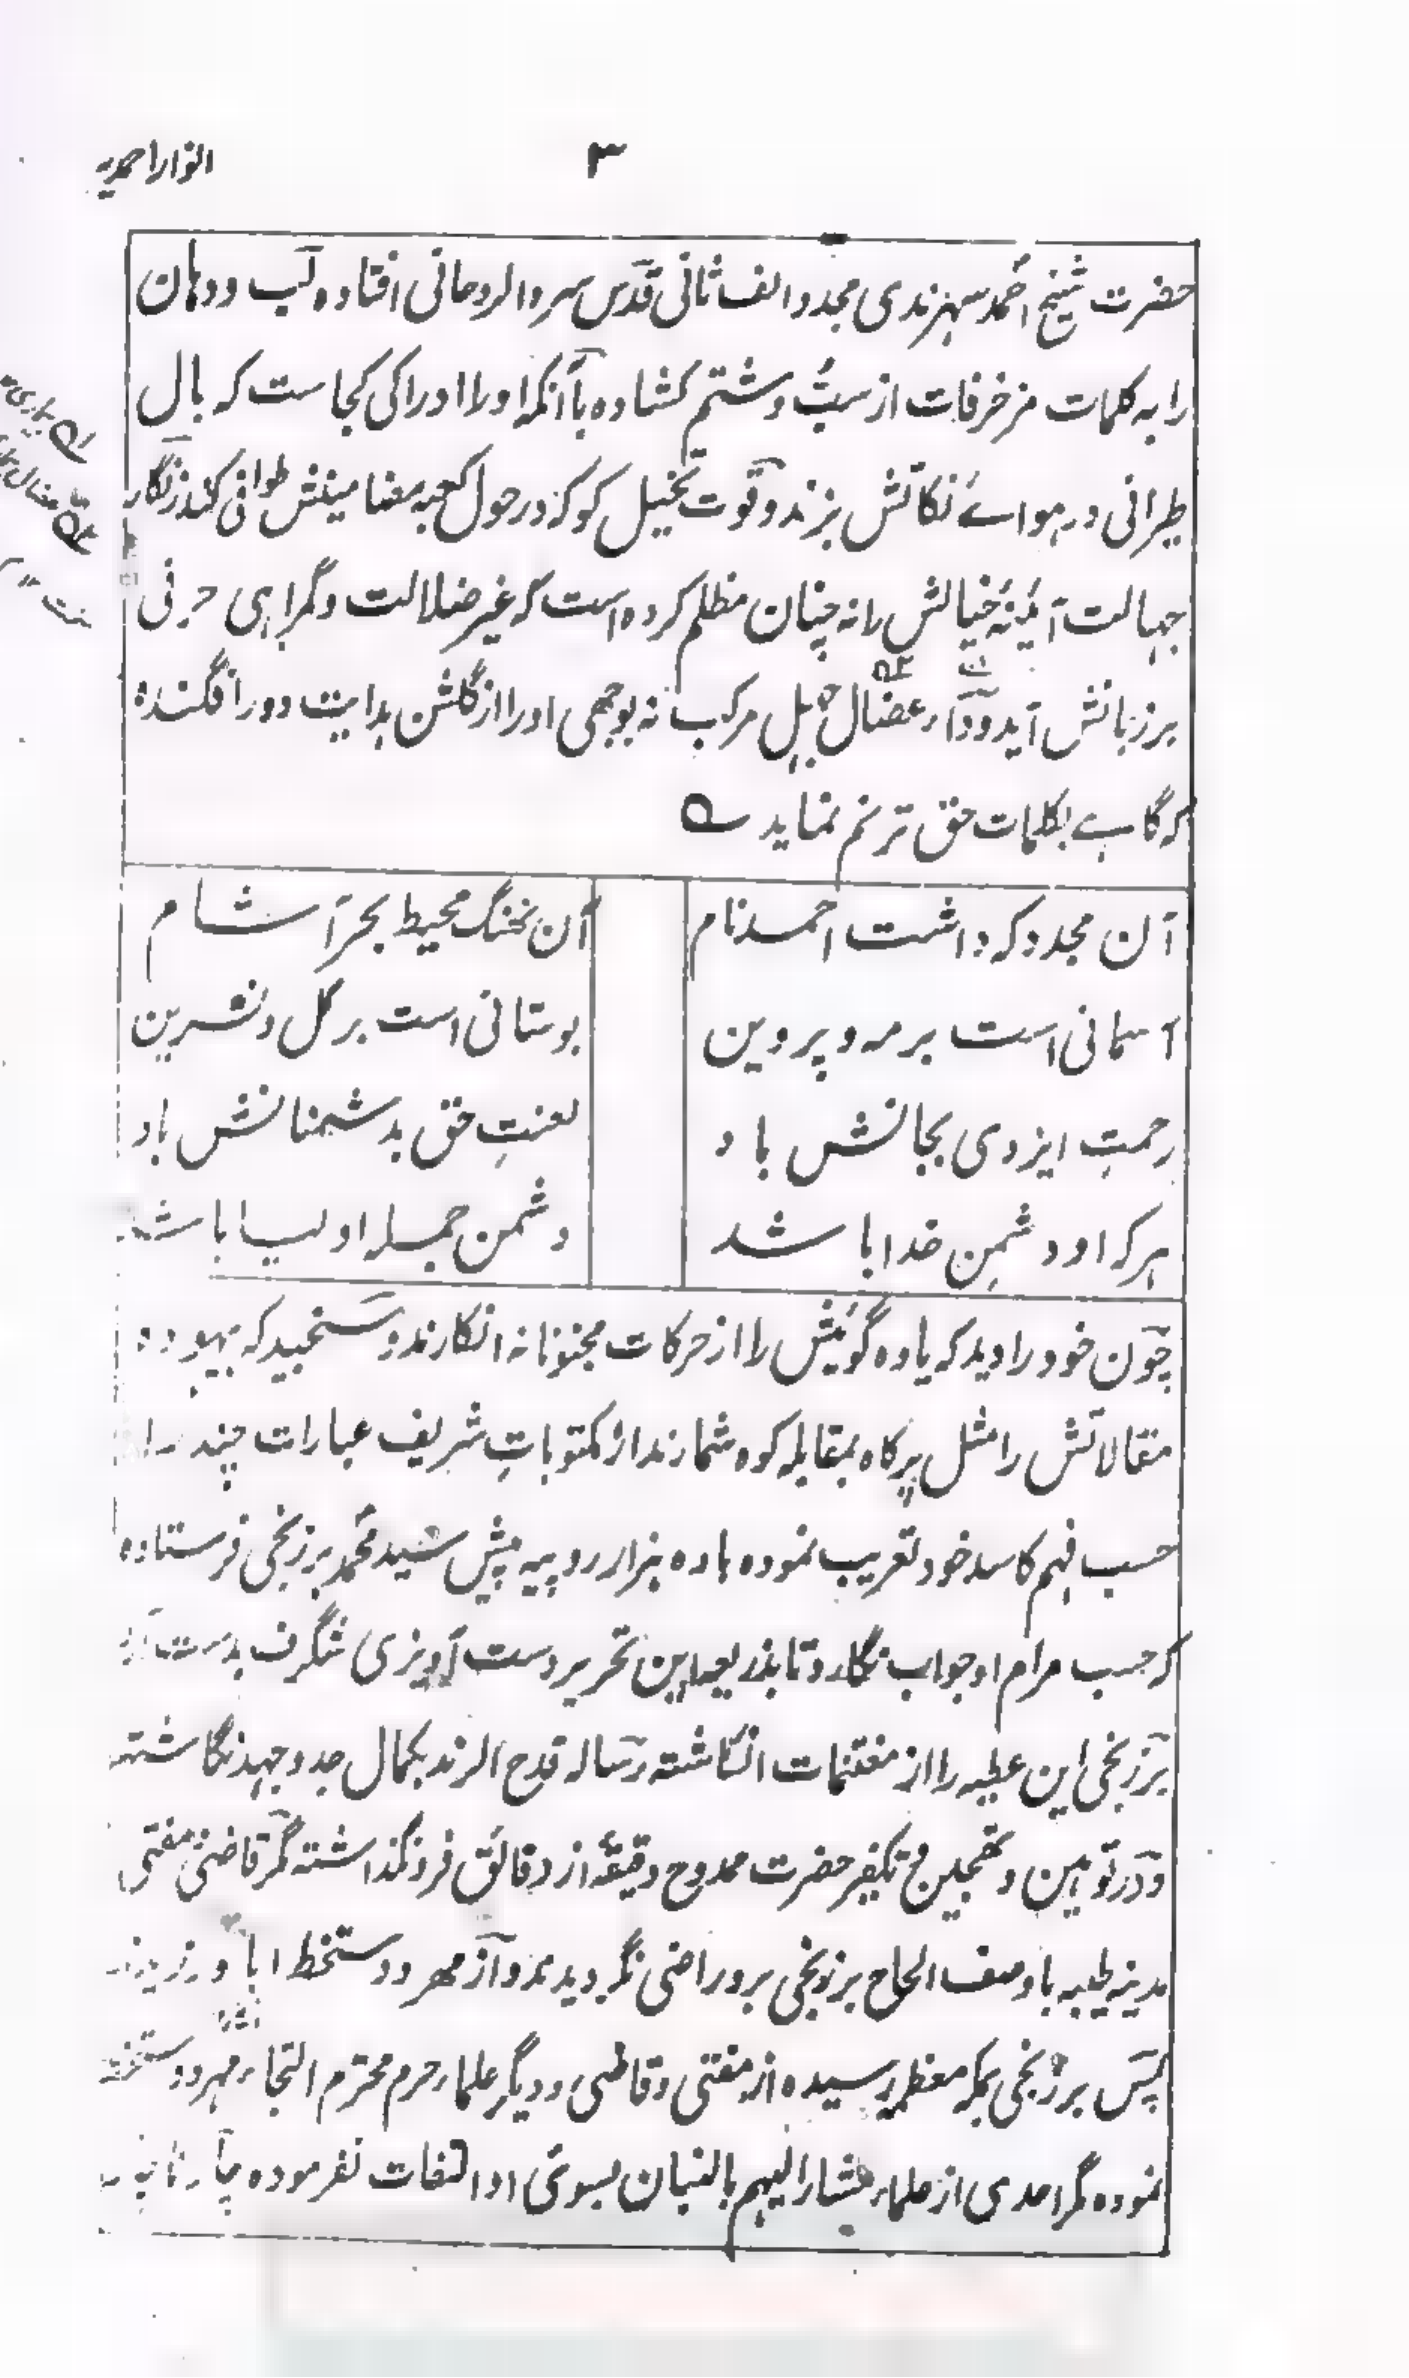 ۳
انوار احمدیہ
حضرت شیخ احمد سہرندی مجدد الف ثانی قدس سرہ الروحانی افتادہ لب و دہان
را بہ کلمات مزخرفات از سبّ و شتم کشادہ با آنکہ او را ادراکی کجاست کہ بال
طیرانی در ہواے نکاتش بزند و قوت تخیل کو کہ در حول کعبہ مضامینش طوافی کند زنگار
جہالت آئینۂ خیالش را نہ چنان مظلم کردہ است کہ غیر ضلالت و گمراہی حرفی
بر زبانش آید و داء عضال جہل مرکب نہ بوجہی او را از گلشن ہدایت دور افگندہ
کہ گاہے بکلمات حق ترنم نماید
آن مجدد کہ داشت احمد نام
آن نہنگ محیط بحر آشام
آسمانی است بر مہ و پروین
بوستانی است بر گل و نسرین
رحمتِ ایزدی بجانش باد
لعنتِ حق بدشمنانش باد
ہر کہ او دشمنِ خدا باشد
دشمن جملہ اولیا باشد
چون خود را دید کہ یاوہ گوئیش را از حرکات مجنونانہ انکارند و سنجید کہ بیہودہ
مقالاتش را مثل پرِ کاہ بمقابلہ کوہ شمارند از مکتوباتِ شریف عبارات چند را
حسب فہم کاسد خود تعریب نمودہ بادہ ہزار روپیہ پیش سید محمد برزنجی فرستادہ
کہ حسب مرام او جواب نگارد تا بذریعہ این تحریر دست آویزی شگرف بدست
برزنجی این عطیہ را از مغتنمات انگاشتہ رسالہ قدح الزند بکمال جد و جہد نگاشتہ
و در توہین و تہجین و تکفیر حضرت ممدوح دقیقۂ از دقائق فرو نگذاشتہ مگر قاضی مفتی
مدینہ طیبہ با وصف الحاح برزنجی برو راضی نگردیدند و از مہر و دستخط ابا ورزیدند
پس برزنجی بمکہ معظمہ رسیدہ از مفتی و قاضی و دیگر علماء حرم محترم التجاء مہر و دستخط
نمودہ مگر احدی از علماء مشار الیہم بالبنان بسوئ او التفات نفرمودہ